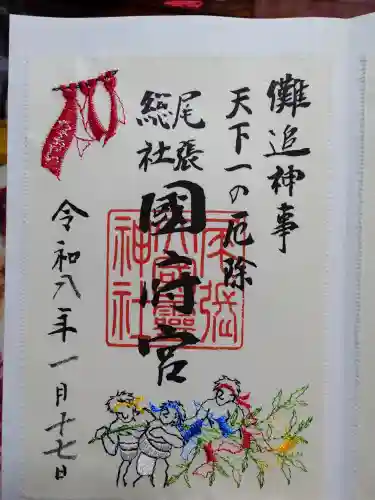 儺追神事
天下一の厄除
尾張
総社
國府宮
尾張大國霊神社
令和八年一月十七日